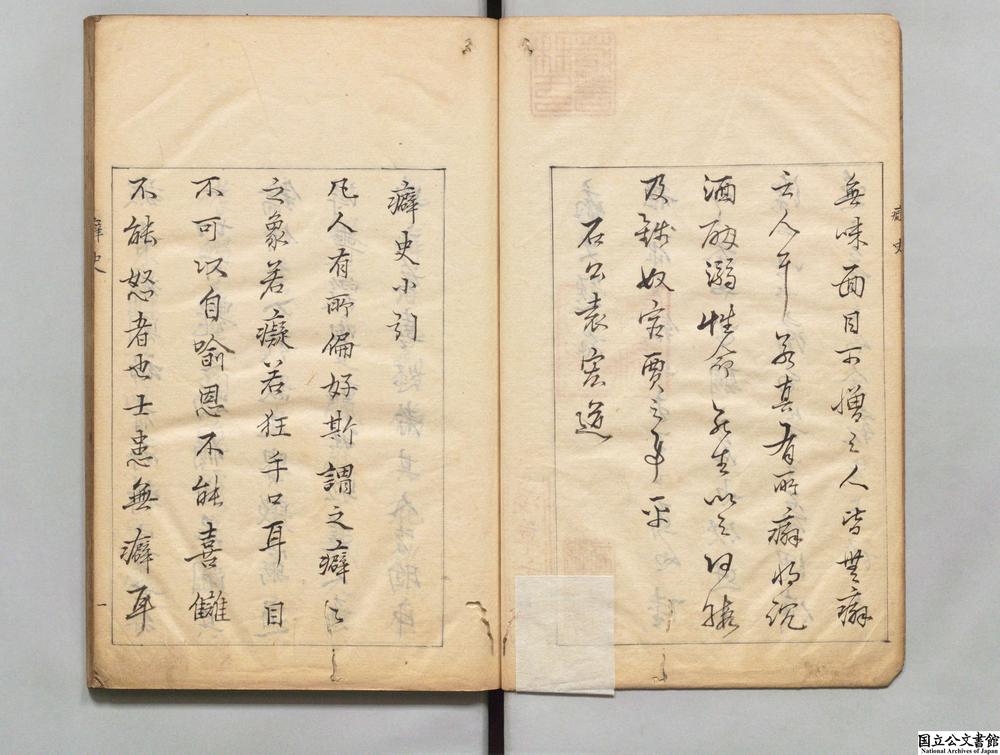 無味面目可憎之人皆無癖
之人耳若真有所癖将沉
酒酣溺性命死生以之何暇
及錢奴宦賈之事乎
石公袁宏道
癖史
癖史小引
凡人有所偏好斯謂之癖癖
之象若癡若狂手口耳目
不可以自喻恩不能喜讎
不能怒者也士患無癖耳
癖史
一
国立公文書館
National Archives of Japan